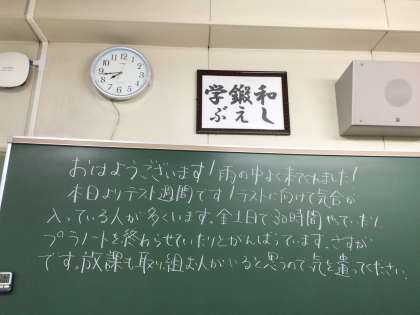 和し
鍛え
学ぶ
おはようございます!雨の中よく来てくれました!
本日よりテスト週間です!テストに向けて気合が
入っている人が多くいます。金土日で30時間やっていたり
プラノートを終わらせていたりとがんばっています。さすが
です。放課も取り組む人がいると思うので気を遣ってください。